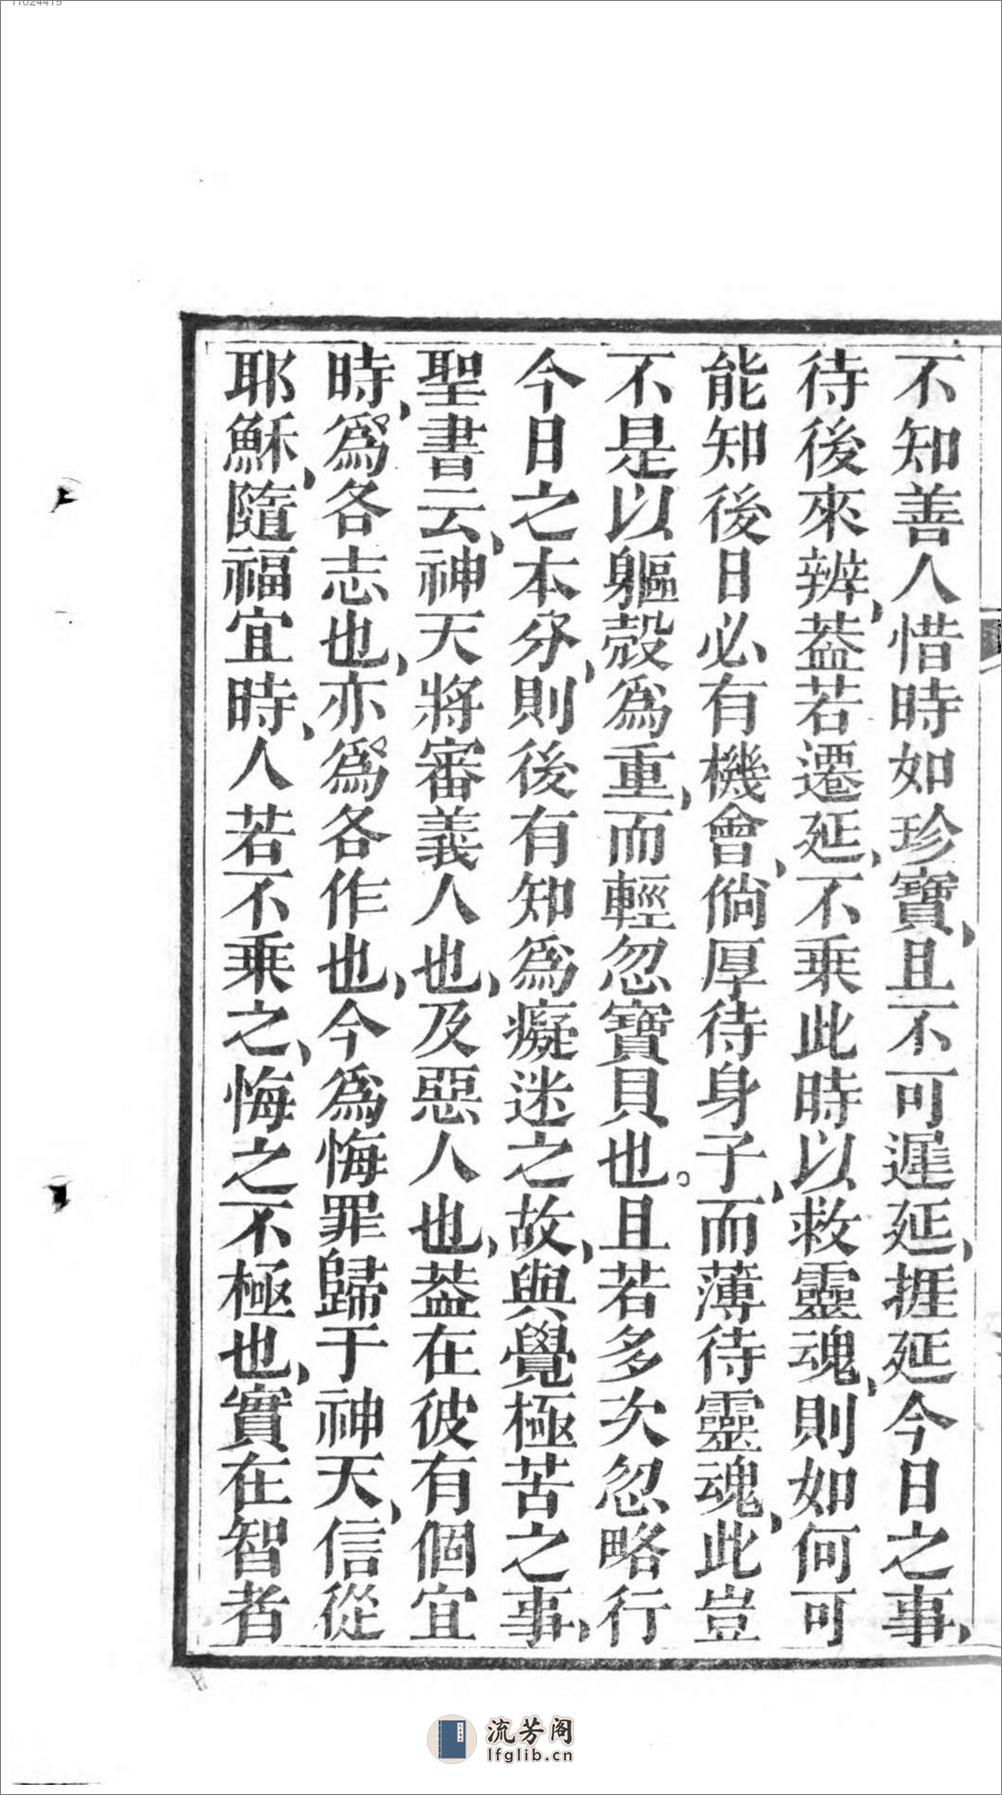 11024415
不知善人惜時如珍寶、且不可遲延、捱延今日之事、
待後來辨、葢若遷延、不乘此時以救靈魂、則如何可
能知後日必有機會、倘厚待身子、而薄待靈魂、此豈
不是以軀殼爲重、而輕忽寶貝也。且若多次忽略行
今日之本分、則後有知爲癡迷之故、與覺極苦之事、
聖書云、神天將審義人也、及惡人也、葢在彼有個宜
時、爲各志也、亦爲各作也、今爲悔罪歸于神天、信從
耶穌、隨福宜時、人若不乘之、悔之不極也、實在智者
流芳阁
lfglib.cn